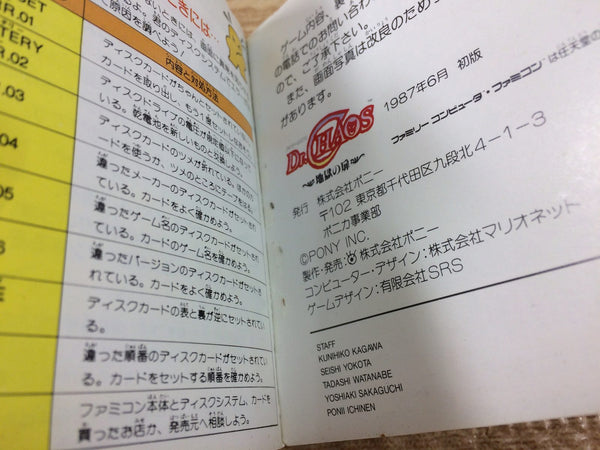 SET
R.01
TTERY
R.02
.03
04
05
ときには…
ないときには、
原因を調べよう！君のディスクシステム
内容と対処方法
ディスクカードがちゃんとセットされていない。
カードを取り出し、もう1度セット
ディスクドライブの電圧が
いる。乾電池を新しいものと交換
ディスクカードのツメが折れている。
カードを使うか、ツメのところにテープをはる。
違ったメーカーのディスクカードがセットされ
ている。カードをよく確かめよう。
違ったゲーム名のディスクカードがセットされ
ている。カードのゲーム名を確かめよう。
違ったバージョンのディスクカードがセットさ
れている。カードをよく確かめよう。
ディスクカードの表と裏が逆にセットされてい
る。
違った順番のディスクカードがセットされてい
る。カードをセットする順番を確かめよう。
ファミコン本体とディスクシステム、カードを
買ったお店か、発売元へ相談しよう。
ゲーム内容、裏
の電話でのお問い合わ
ので、ご了承下さい。
また、画面写真は改良のためっ
があります。
Dr.CHAOS
〜地獄の扉〜
1987年6月 初版
ファミリー コンピュータ・ファミコン は任天堂の
発行 株式会社ポニー
〒102 東京都千代田区九段北4-1-3
ポニカ事業部
©PONY INC.
製作・発売：株式会社ポニー
コンピューター・デザイン：株式会社マリオネット
ゲームデザイン：有限会社SRS
STAFF
KUNIHIKO KAGAWA
SEISHI YOKOTA
TADASHI WATANABE
YOSHIAKI SAKAGUCHI
PONII ICHINEN